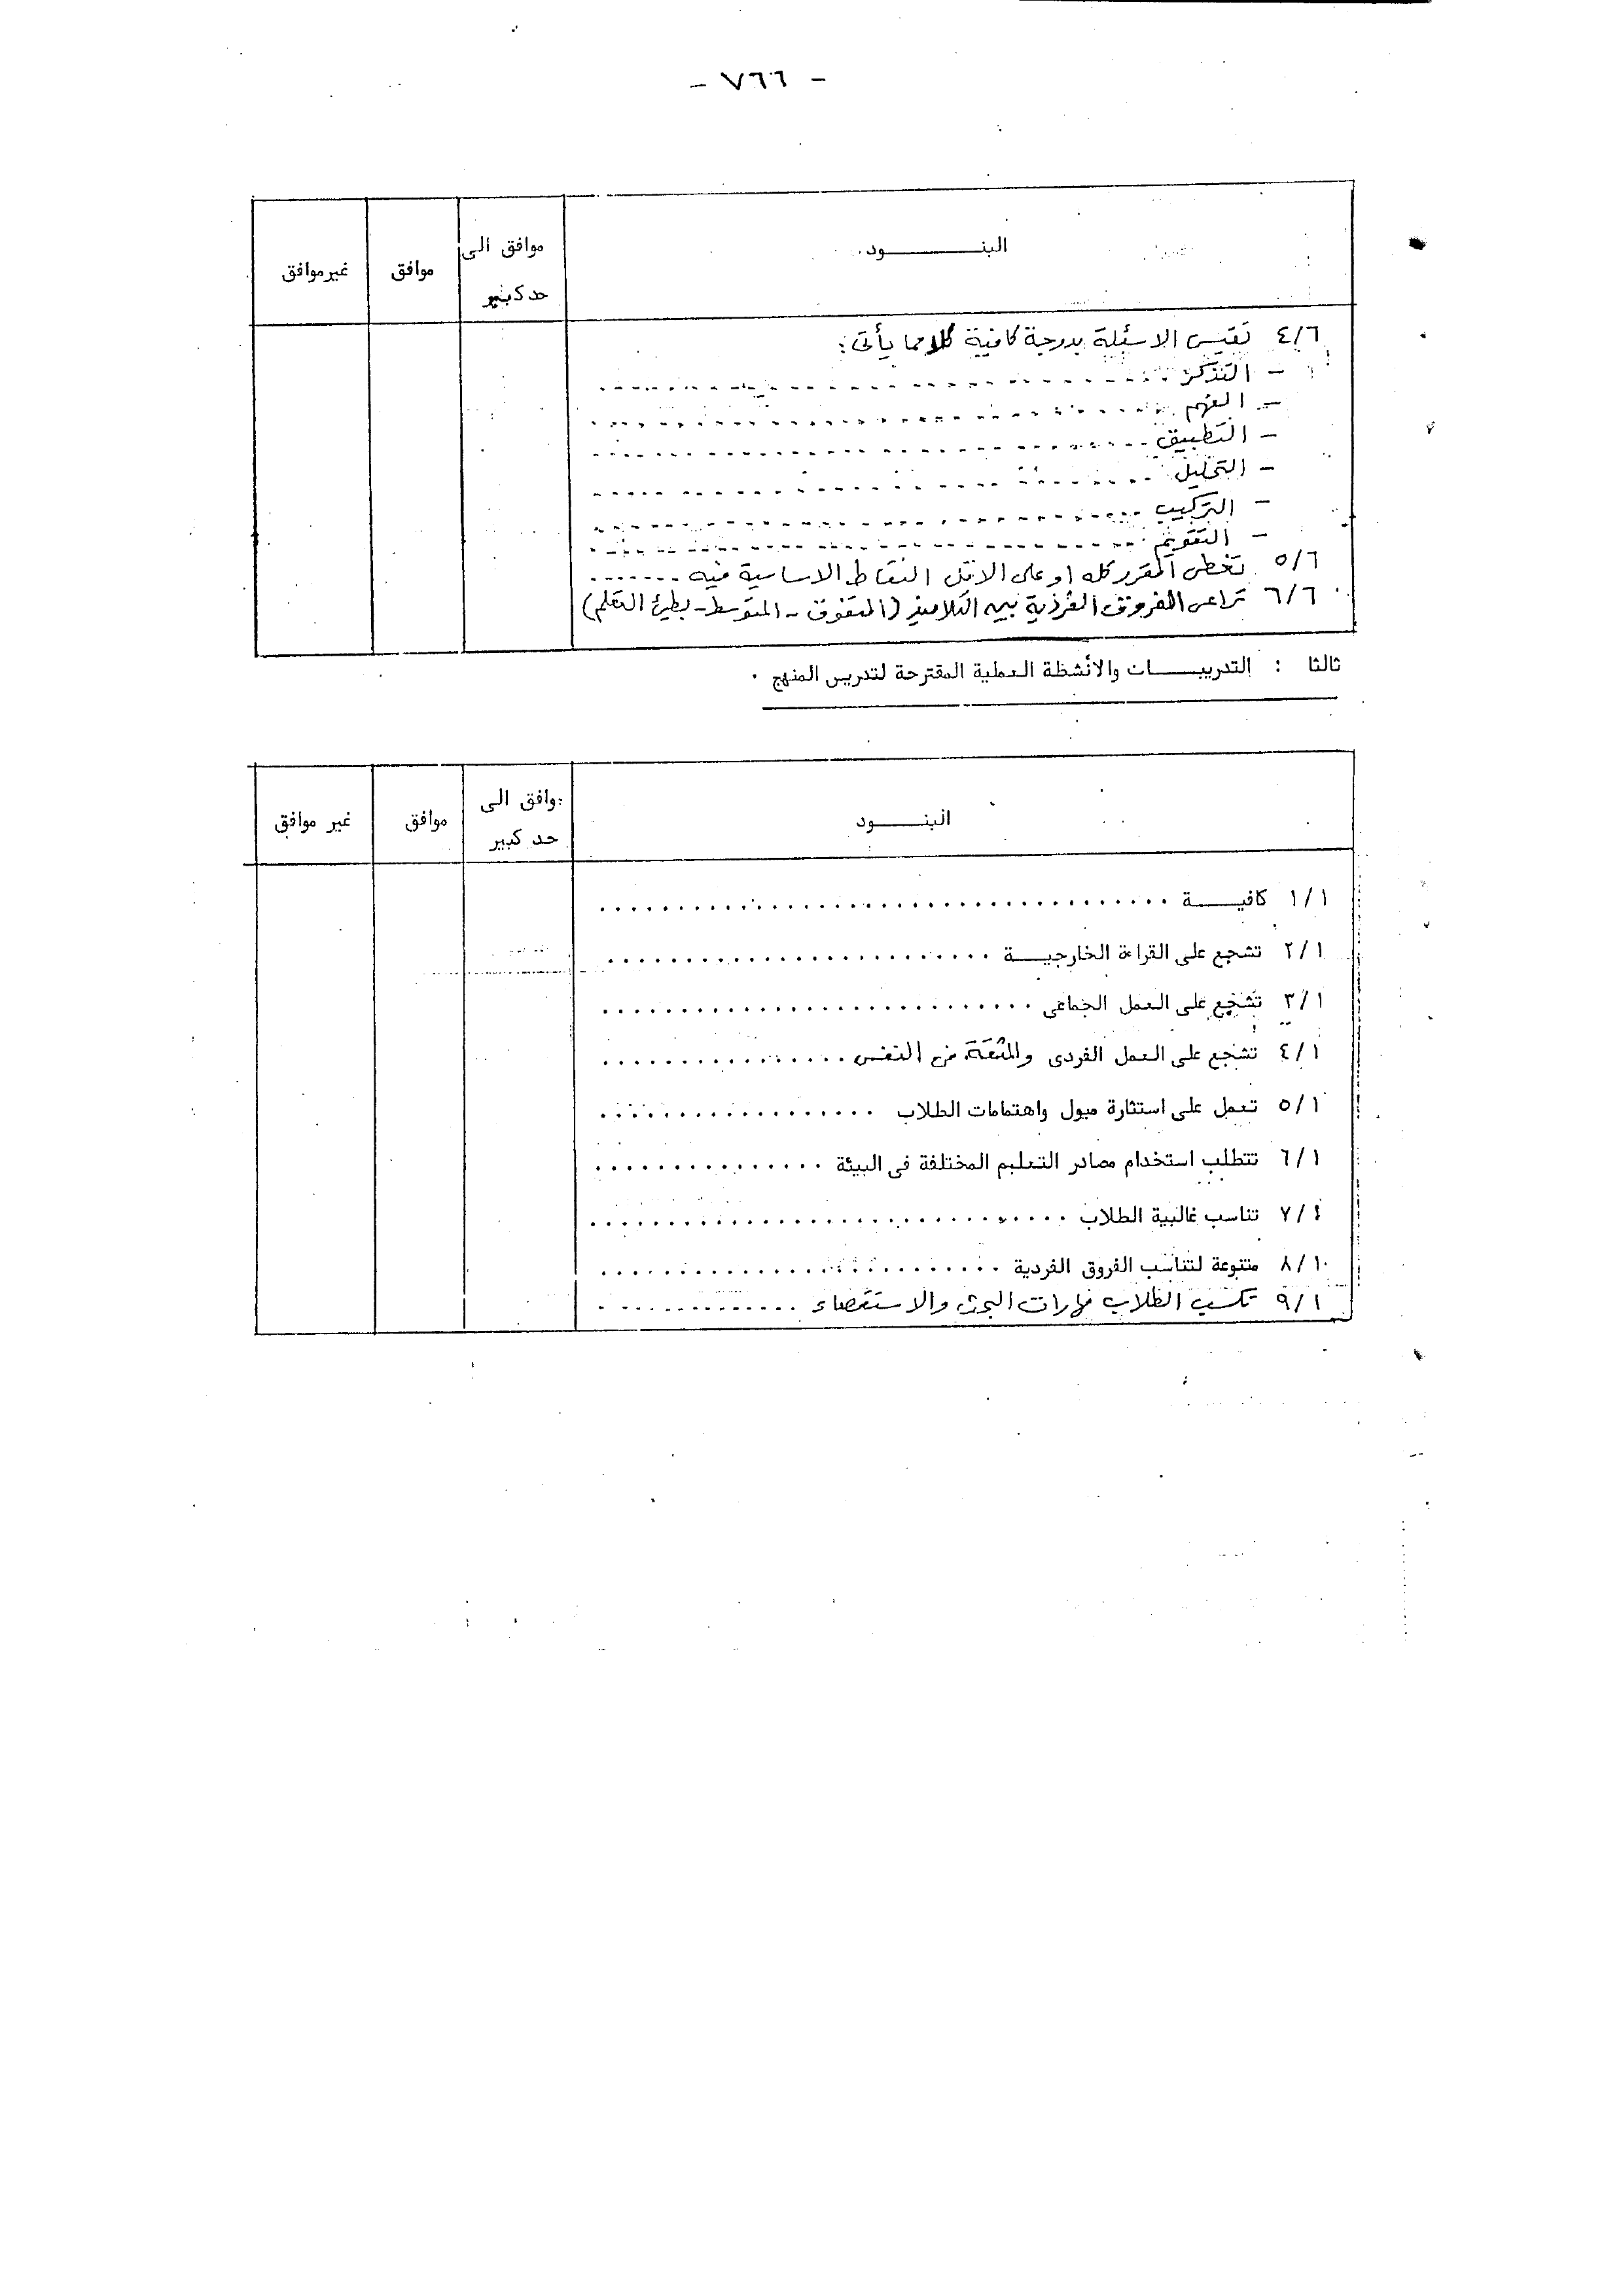 - ٧٦٦ -
البنــــــــــود
موافق الى حد كبير
موافق
غير موافق
٤/٦ تقيس الاسئلة بدرجة كافية كلا مما يأتى :
- التذكر
- الفهم
- التطبيق
- التحليل
- التركيب
- التقويم
٥/٦ تغطى المقرر كله او على الاقل النقاط الاساسية فيه
٦/٦ تراعى الفروق الفردية بين التلاميذ (المتفوق - المتوسط - بطيئ التعلم)
ثالثا : التدريبــــــات والأنشطة العملية المقترحة لتدريس المنهج .
البنـــــــود
موافق الى حد كبير
موافق
غير موافق
١/١ كافيـــــة
٢/١ تشجع على القراءة الخارجيـــة
٣/١ تشجع على العمل الجماعى
٤/١ تشجع على العمل الفردى والثقة فى النفس
٥/١ تعمل على استثارة ميول واهتمامات الطلاب
٦/١ تتطلب استخدام مصادر التعليم المختلفة فى البيئة
٧/١ تناسب غالبية الطلاب
٨/١ متنوعة لتناسب الفروق الفردية
٩/١ تكسب الطلاب مهارات البحث والاستقصاء